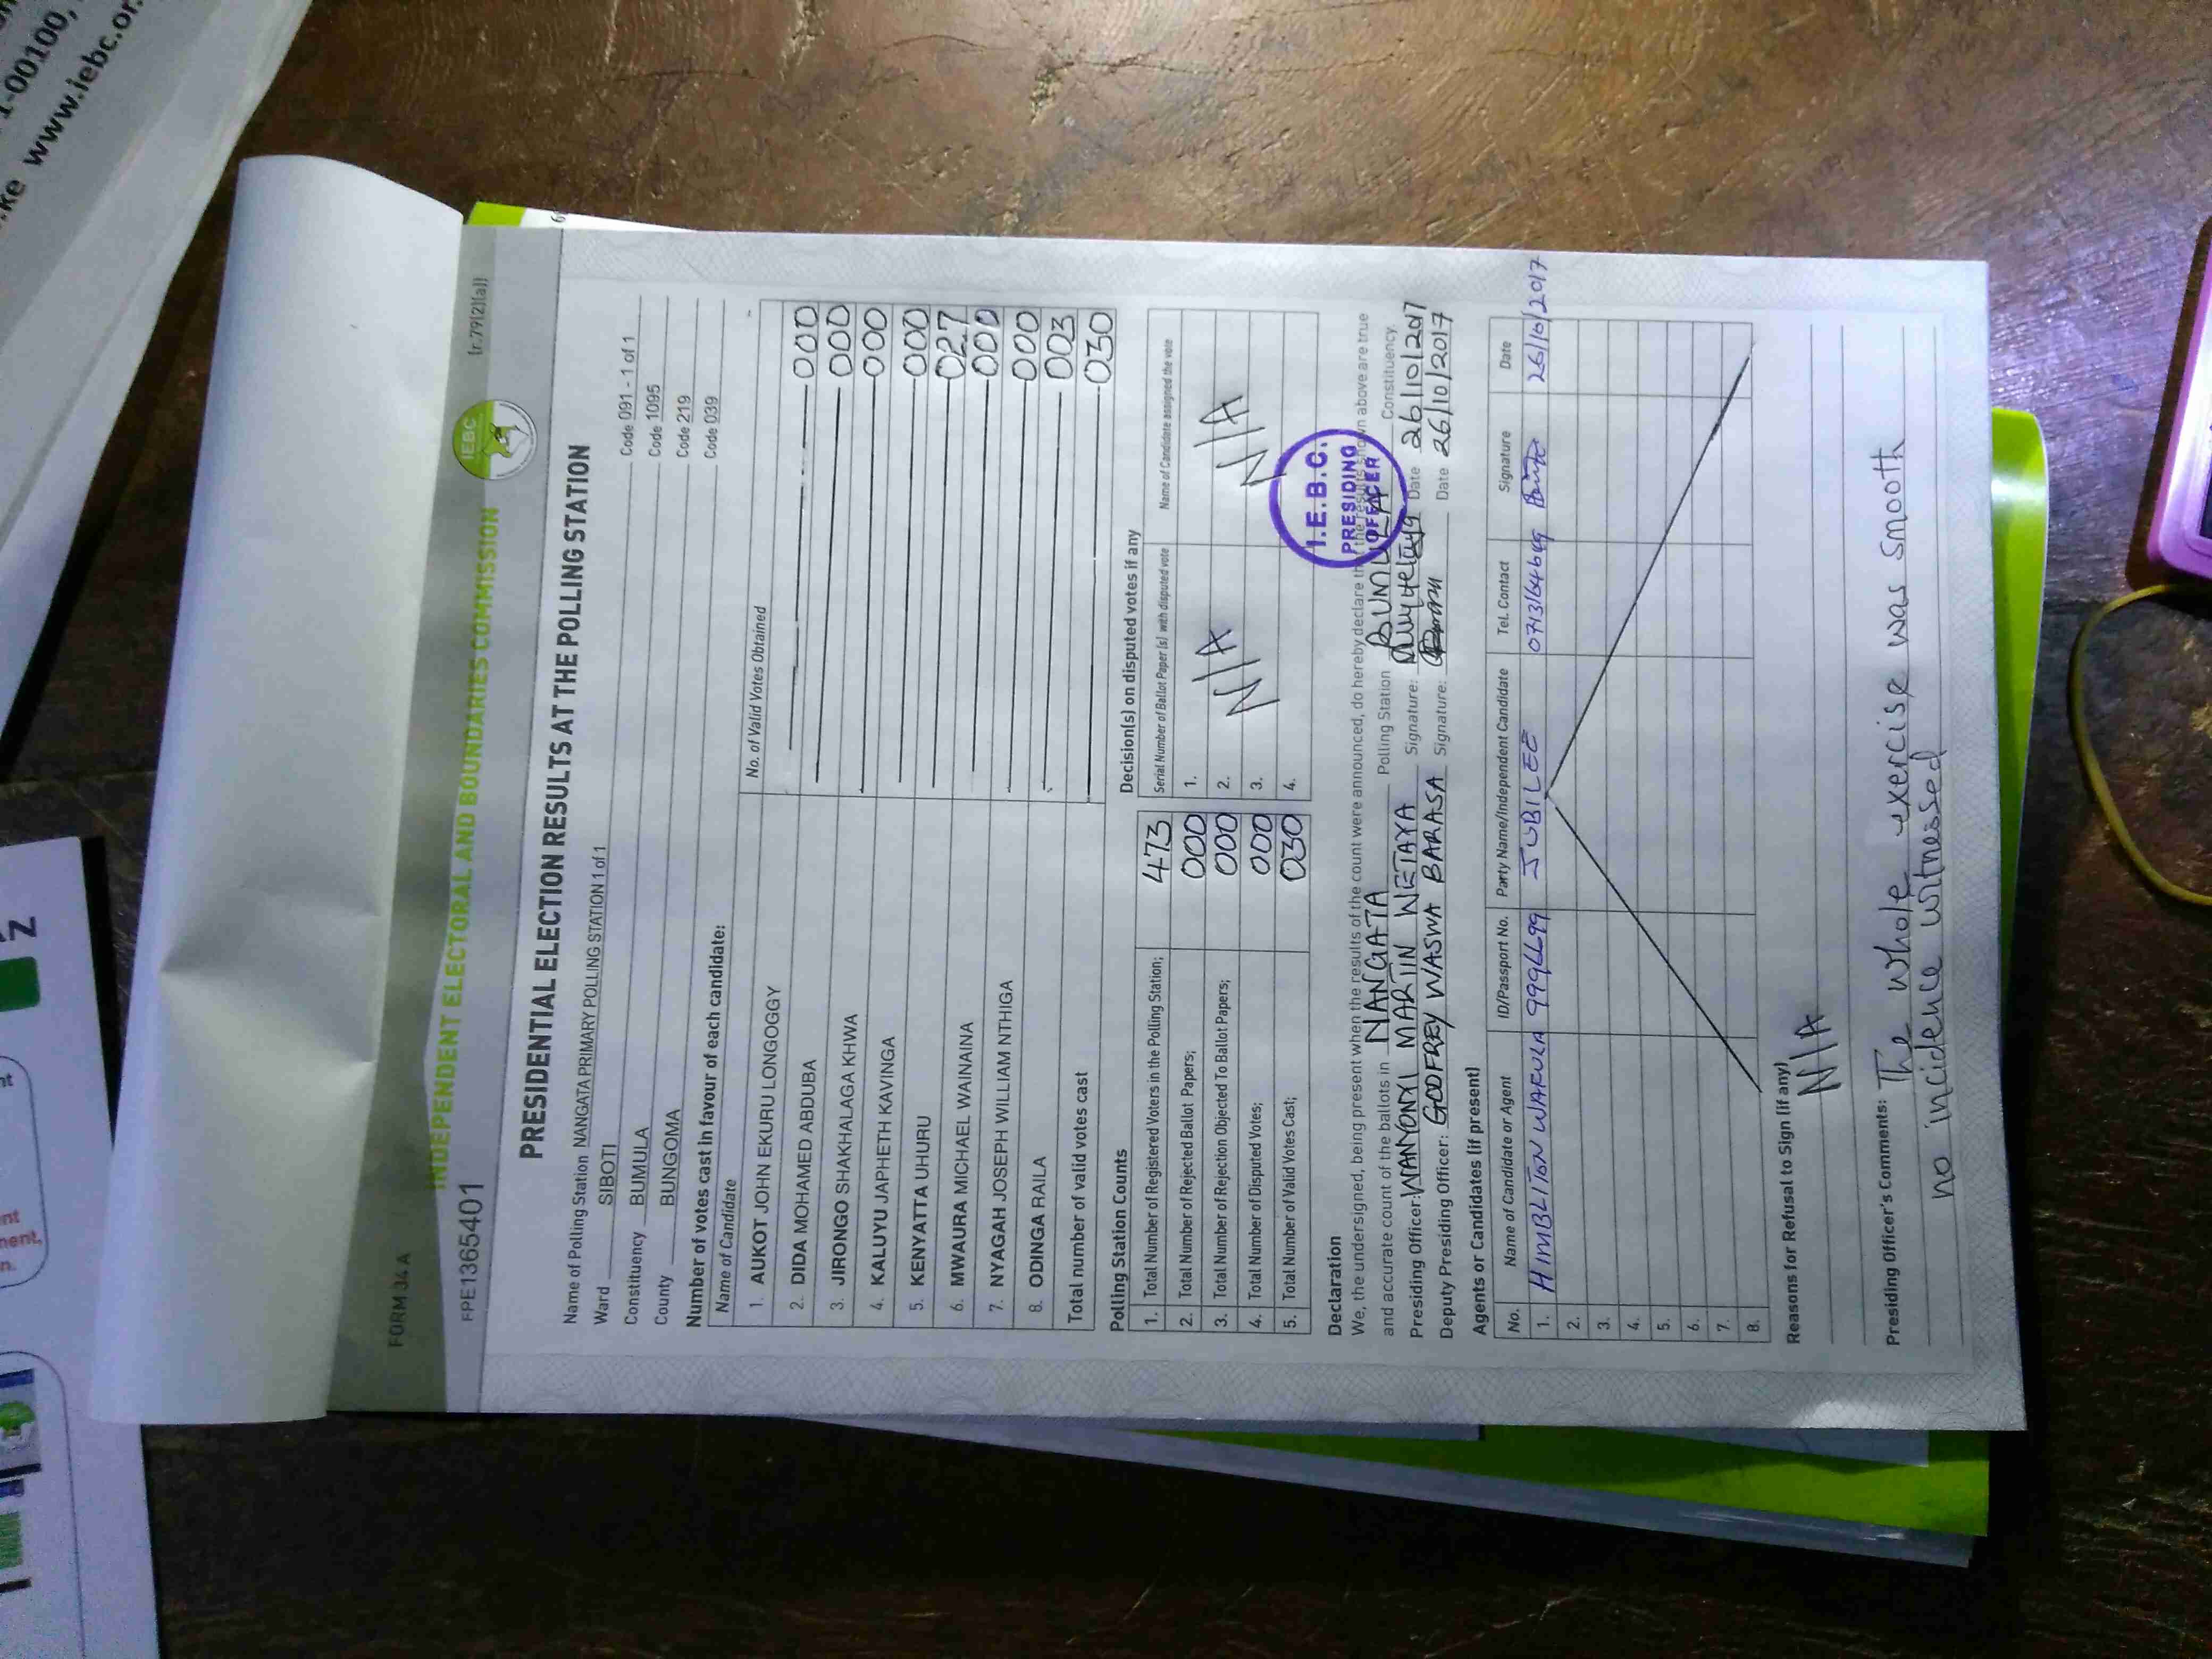 1-00100,
.ke www.iebc.or.
FORM 34 A
INDEPENDENT ELECTORAL AND BOUNDARIES COMMISSION
IEBC
FPE1365401
[r.79(2)(a)]
PRESIDENTIAL ELECTION RESULTS AT THE POLLING STATION
Name of Polling Station NANGATA PRIMARY POLLING STATION 1 of 1 Code 091 - 1 of 1
Ward SIBOTI Code 1095
Constituency BUMULA Code 219
County BUNGOMA Code 039
Number of votes cast in favour of each candidate:
Name of Candidate No. of Valid Votes Obtained
1. AUKOT JOHN EKURU LONGOGGY 000
2. DIDA MOHAMED ABDUBA 000
3. JIRONGO SHAKHALAGA KHWA 000
4. KALUYU JAPHETH KAVINGA 000
5. KENYATTA UHURU 027
6. MWAURA MICHAEL WAINAINA 000
7. NYAGAH JOSEPH WILLIAM NTHIGA 000
8. ODINGA RAILA 003
Total number of valid votes cast 030
Polling Station Counts
1. Total Number of Registered Voters in the Polling Station; 473
2. Total Number of Rejected Ballot Papers; 000
3. Total Number of Rejection Objected To Ballot Papers; 000
4. Total Number of Disputed Votes; 000
5. Total Number of Valid Votes Cast; 030
Decision(s) on disputed votes if any
Serial Number of Ballot Paper (s) with disputed vote Name of Candidate assigned the vote
1.
2. N/A N/A
3.
4.
I.E.B.C.
PRESIDING
OFFICER
Declaration
We, the undersigned, being present when the results of the count were announced, do hereby declare that the results shown above are true
and accurate count of the ballots in NANGATA Polling Station BUMULA Constituency.
Presiding Officer: WANYONYI MARTIN WETAYA Signature: Date 26/10/2017
Deputy Presiding Officer: GODFREY WASWA BARASA Signature: Date 26/10/2017
Agents or Candidates (if present)
No. Name of Candidate or Agent ID/Passport No. Party Name/Independent Candidate Tel. Contact Signature Date
1. JUBILEE 26/10/2017
2.
3.
4.
5.
6.
7.
8.
Reasons for Refusal to Sign (if any)
N/A
Presiding Officer's Comments: The whole exercise was smooth
no incidence witnessed